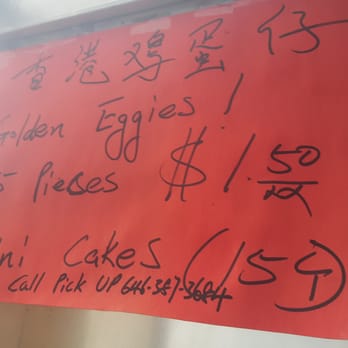 香港鸡蛋仔
Golden Eggies!
15 Pieces $1.50
Mini Cakes (15个)
Call Pick UP 646-387-3684